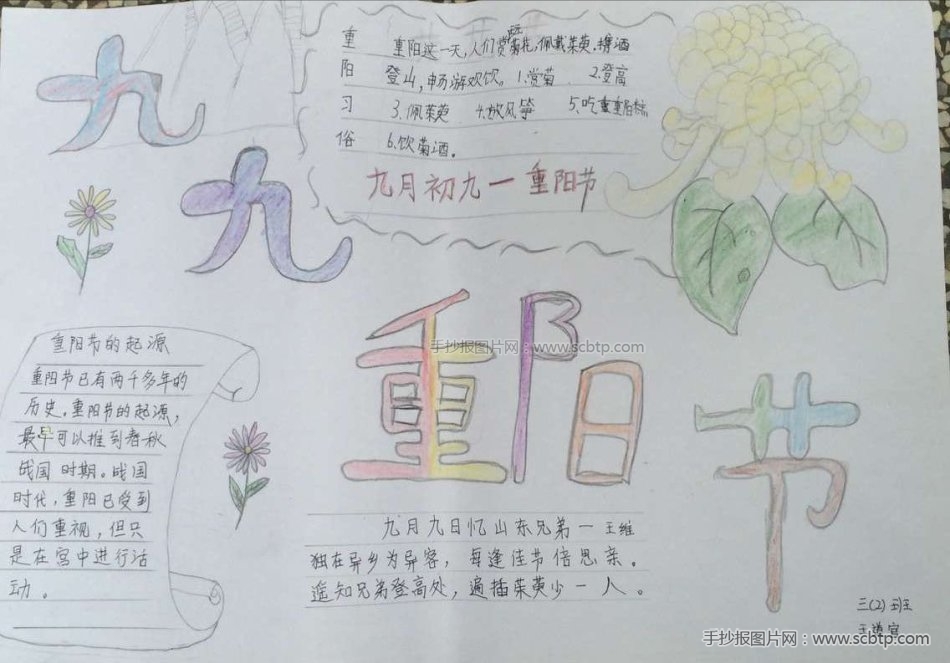 九
九
重
阳
习
俗
重阳这一天,人们赏菊花,佩戴茱萸,携酒
登山,畅游欢饮。1.赏菊 2.登高
3.佩茱萸 4.放风筝 5.吃重阳糕
6.饮菊酒。
九月初九一重阳节
重阳节
手抄报图片网:www.scbtp.com
重阳节的起源
重阳节已有两千多年的
历史,重阳节的起源,
最早可以推到春秋
战国时期。战国
时代,重阳已受到
人们重视,但只
是在宫中进行活
动。
九月九日忆山东兄弟一王维
独在异乡为异客,每逢佳节倍思亲。
遥知兄弟登高处,遍插茱萸少一人。
三(2)班
手抄报图片网:www.scbtp.com